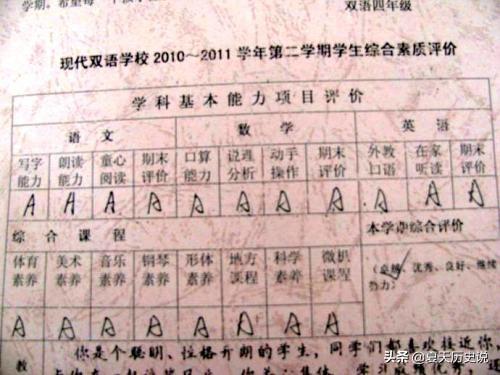 学期。希望每一个孩子
双语四年级
现代双语学校2010～2011学年第二学期学生综合素质评价
学科基本能力项目评价
语文 数学 英语
写字能力 朗读能力 童心阅读 期末评价 口算能力 说理分析 动手操作 期末评价 外教口语 在家听读 期末评价
A A A A A A A A A A A
综合课程 本学期综合评价
体育素养 美术素养 音乐素养 钢琴素养 形体素养 地方课程 科学素养 微机课程 (卓越、优秀、良好、继续努力)
A A A A A A A A
你是个聪明、性格开朗的学生，同学们都喜欢接近你。
教
头条 @夏天历史说